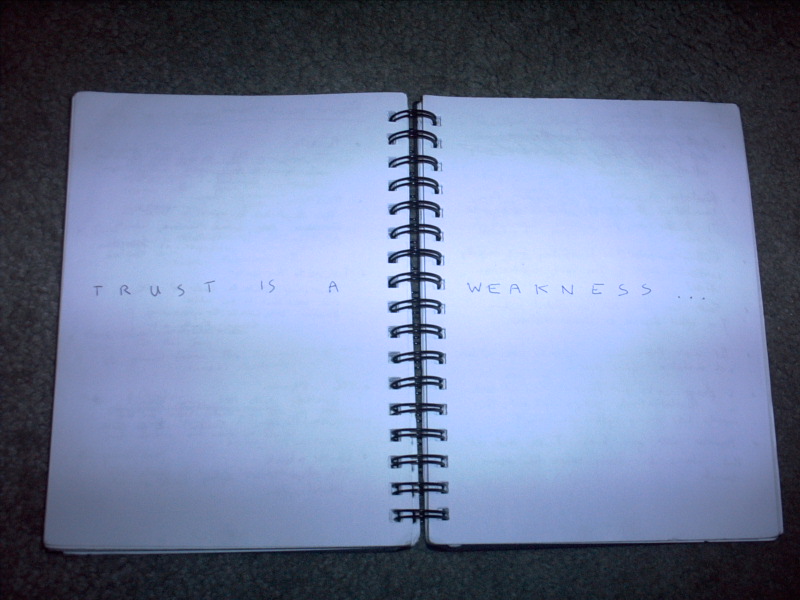 TRUST IS A WEAKNESS...